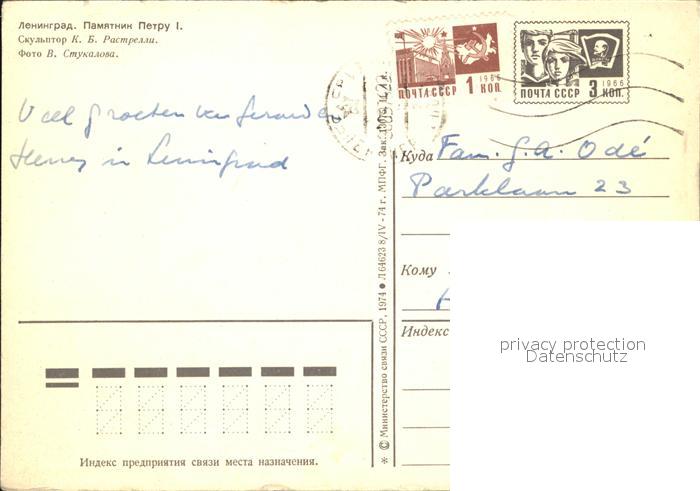 Ленинград. Памятник Петру I.
Скульптор К. Б. Растрелли.
Фото В. Стукалова.
1966
ПОЧТА СССР 1 КОП.
1966
ПОЧТА СССР 3 КОП.
Veel groeten van Gerard &
Henny in Leningrad
Куда Fam. G. A. Odé
Parklaan 23
Кому
Индекс
privacy protection
Datenschutz
* © Министерство связи СССР, 1974 ● Л 64623 8/IV - 74 г. МПФГ. Зак.
Индекс предприятия связи места назначения.